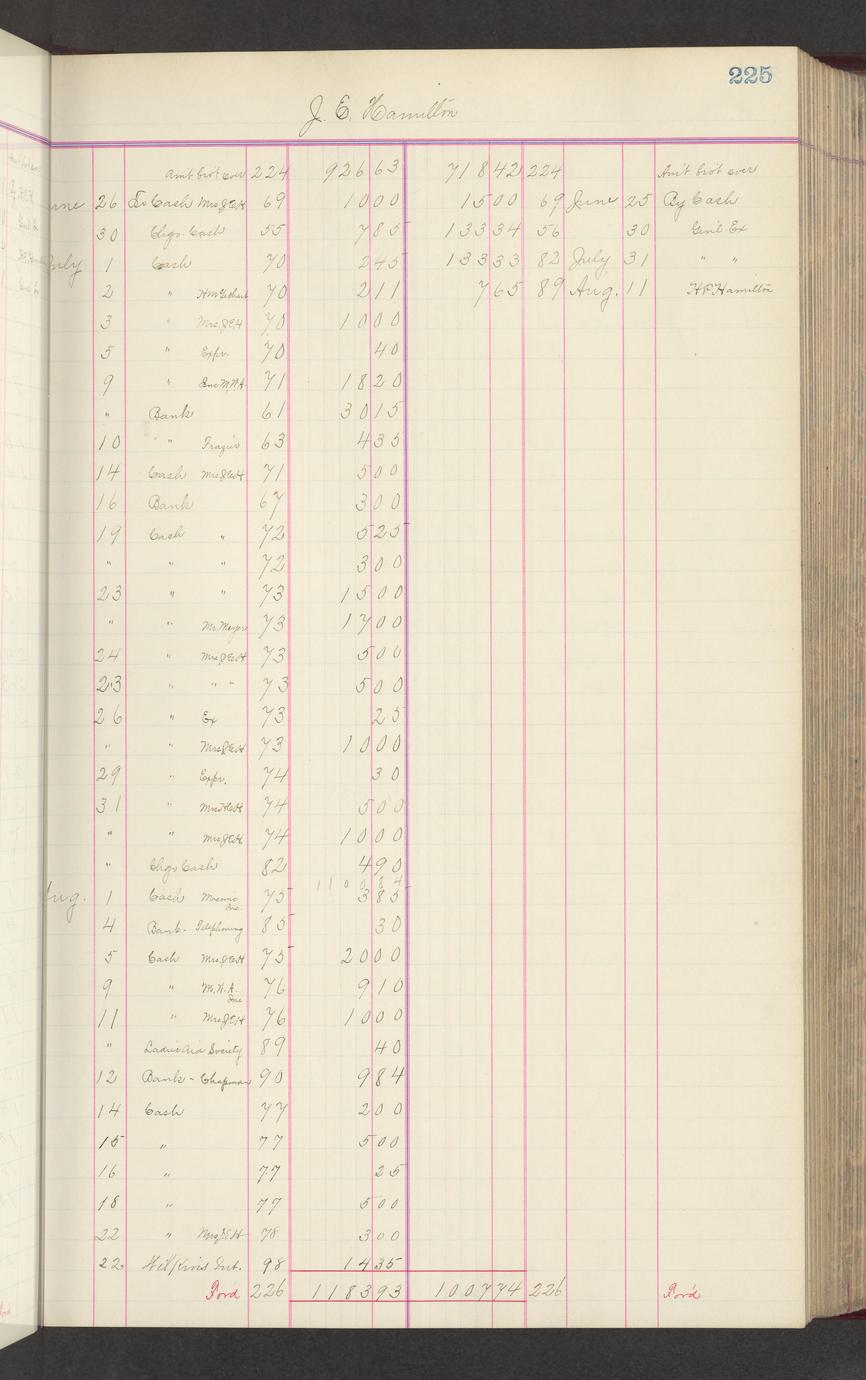 225
J. E. Hamilton
Amt brot over 224 926 63 718 42 224 Amt brot over
June 26 To Cash Mrs J E H 69 10 00 15 00 69 June 25 By Cash
30 Chgo. Cash 55 7 85 133 34 56 30 Genl Ex
July 1 Cash 70 2 45 133 33 82 July 31 " "
2 " 70 2 11 7 65 89 Aug. 11 H P Hamilton
3 " Mrs. J E H 70 10 00
5 " Expr. 70 40
9 " Ins M.W.A. 71 18 20
" Bank 61 30 15
10 " Frazier 63 4 35
14 Cash Mrs J E H 71 5 00
16 Bank 67 3 00
19 Cash " 72 5 25
" " " 72 3 00
23 " " 73 15 00
" " Mr. Meyer 73 17 00
24 " Mrs J E H 73 5 00
23 " " " 73 5 00
26 " Ex 73 25
" " Mrs J E H 73 10 00
29 " Expr. 74 30
31 " 74 5 00
" " Mrs J E H 74 10 00
" Chgo Cash 82 4 90
1100 84
Aug. 1 Cash Masonic Ins. 75 3 85
4 Bank - Telephoning 85 30
5 Cash Mrs J E H 75 20 00
9 " M.W.A. Ins 76 9 10
11 " Mrs J E H 76 10 00
" Ladies Aid Society 89 40
12 Bank - Chapman 90 9 84
14 Cash 77 2 00
15 " 77 5 00
16 " 77 25
18 " 77 5 00
22 " Mrs J E H 78 3 00
22 Int. 98 14 35
For'd 226 1183 93 1007 74 226 For'd